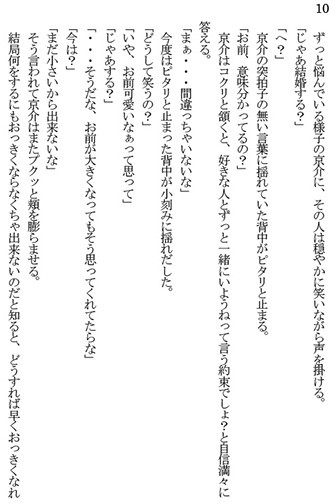 10
ずっと悩んでいる様子の京介に、その人は穏やかに笑いながら声を掛ける。
「じゃあ結婚する？」
「へ？」
京介の突拍子の無い言葉に揺れていた背中がピタリと止まる。
「お前、意味分かってるの？」
京介はコクリと頷くと、好きな人とずっと一緒にいようねって言う約束でしょ？と自信満々に
答える。
「まぁ・・・間違っちゃいないな」
今度はピタリと止まった背中が小刻みに揺れだした。
「どうして笑うの？」
「いや、お前可愛いなぁって思って」
「じゃあする？」
「・・・そうだな、お前が大きくなってもそう思ってくれてたらな」
「今は？」
「まだ小さいから出来ないな」
そう言われて京介はまたプクッと頬を膨らませる。
結局何をするにもおっきくならなくちゃ出来ないのだと知ると、どうすれば早くおっきくなれ